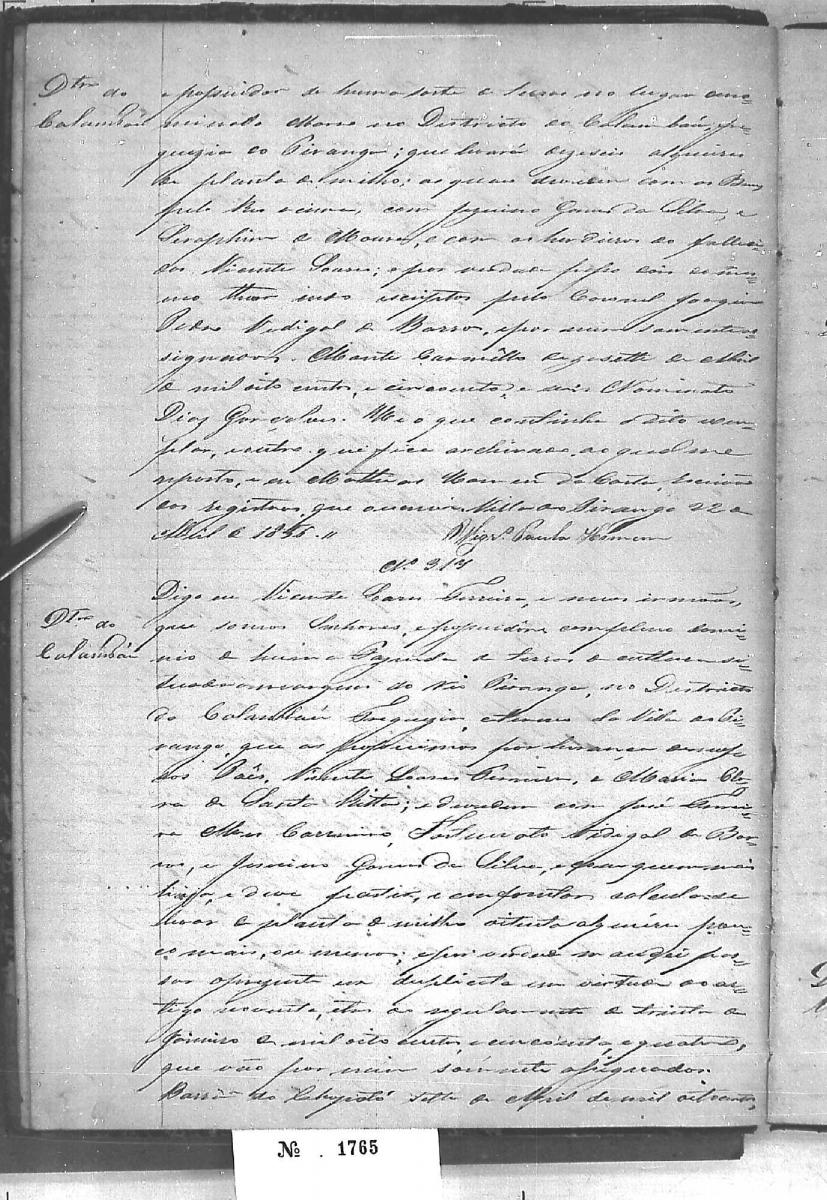 Dtro do
Calambáu
e possuidor de huma sorte de terras no lugar deno=
minado Morro no Districto do Calambáu, fre=
guezia do Piranga; que levará dezeseis alqueires
de planta de milho; as quaes devidem com os
pelo Rio acima, com Joquino Gomes da Silva, e
Seraphim de Moura, e com os herdeiros do falleci=
do Vicente Soares; e por verdade passo dois do mes=
mo theor indo escriptos pelo Coronel Joaquim
Pedro Vidigal de Barros, e por mim somente as=
signados. Monte Carmello dezesette de Abril
de mil oito centos, e cincoenta, e seis Nominato
Dias Gonçalves. He o que continha o dito exem=
plar, e outro que fica archivado, ao qual me
reporto, e eu Mathias Homem da Costa, Escrivão
dos registros, que o escrevi. Villa do Piranga 22 de
Abril de 1856. " O Vigr.º Paula Homem
Nº 317
Dtro do
Calambáu
Digo eu Vicente Soares Ferreira, e meus irmãos,
que somos Senhores, e possuidores com pleno domi=
nio de huma Fazenda de terras de cultura si=
tuada a margem do Rio Piranga, no Districto
do Calambáu Freguezia, e termo da Villa do Pi=
ranga, que as possuimos por herança de nos=
sos Páes, Vicente Soares Ferreira, e Maria Cla=
ra de Santa Ritta; e devidem com José Ferrei=
ra Carneiro, Fortunato Vidigal de Bar=
ros, e Gomes da Silva, e com quem mais
haja, e deve partir, e confrontar, calcula-se
levar de planta de milho oitenta alqueires pou=
co mais, ou menos; e por verdade mandei pas=
sar o presente em duplicata em virtude do ar=
tigo noventa, e tres do regulamento de trinta de
Janeiro de mil oito centos, e cincoenta, e quatro,
que vão por mim somente assignados.
Barra do sette de Abril de mil oitocentos,
Nº . 1765